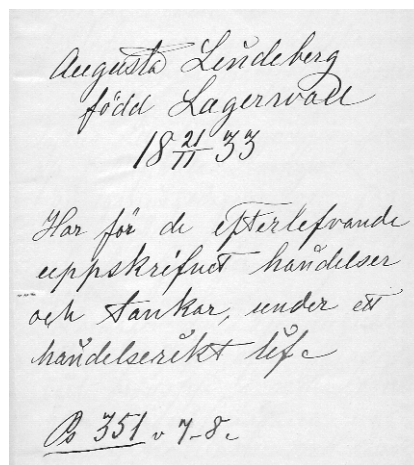 Augusta Lindeberg
född Lagerwall
18 21/11 33
Har för de efterlefvande
uppskrifvet händelser
och tankar, under ett
händelserikt lif.
Ps 351 v 7-8.